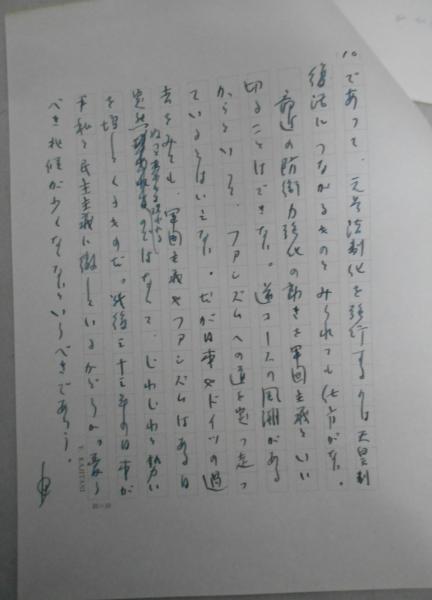 10であって、元号法制化を強行するのは天皇制
復活につながるものとみられても仕方がない。
最近の防衛力強化の動きを軍国主義といい
切ることはできない。逆コースの風潮がある
からといって、ファシズムへの道を突っ走っ
ているとはいえない。だが日本やドイツの過
去をみても、軍国主義やファシズムはある日
突然
のではなくて、じわじわと勢い
を増してくるものだ。戦後三十三年の日本が
平和と民主主義に徹しているかどうか。憂う
べき兆候が少なくないというべきであろう。
T. KAHTANI